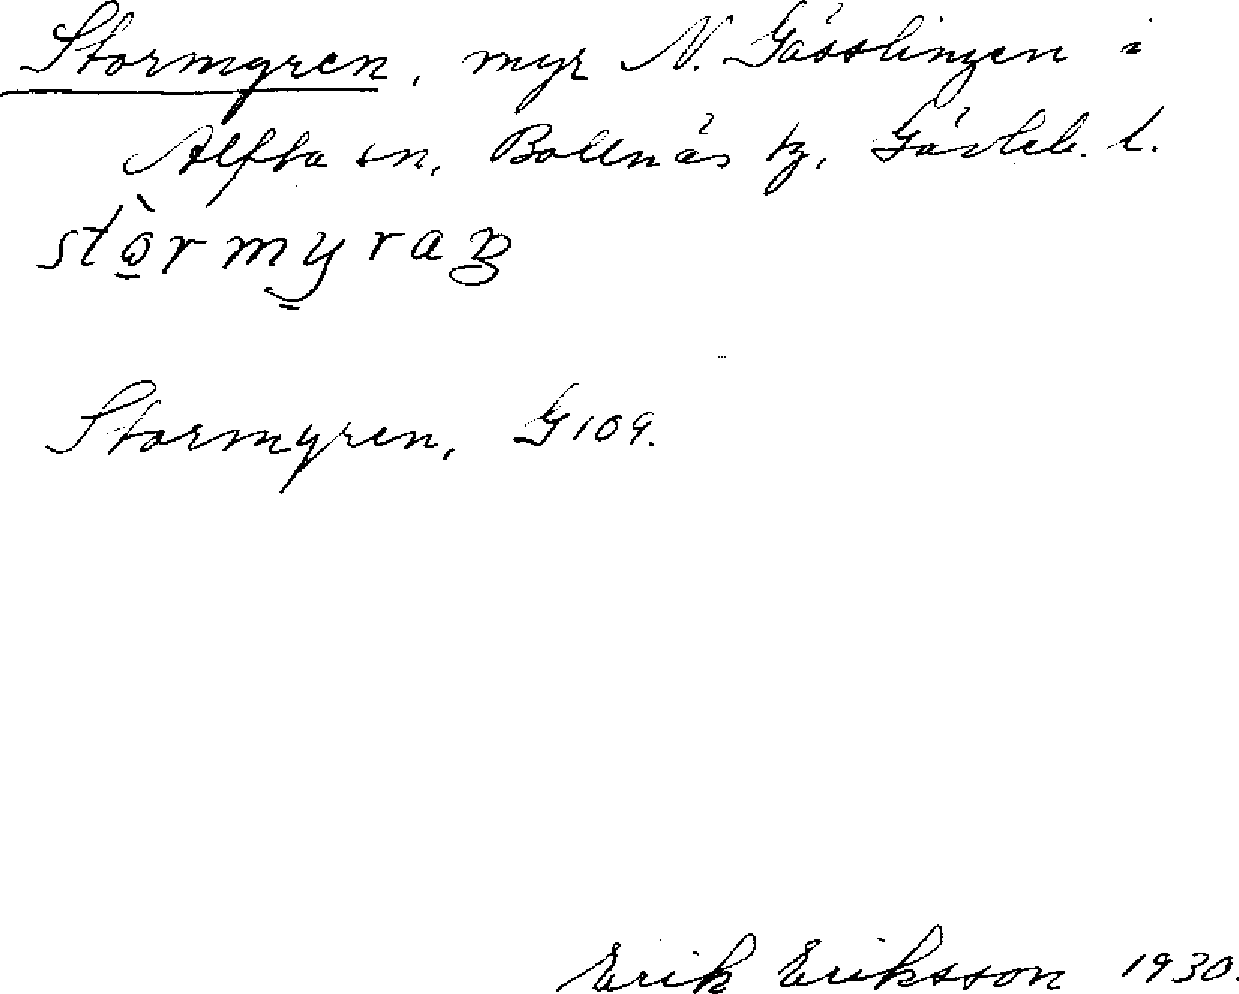 Stormyren, myr N. Gässlingen i
Alfta sn, Bollnäs tg, Gävleb. l.
Stormyren, G109.
Erik Eriksson 1930.